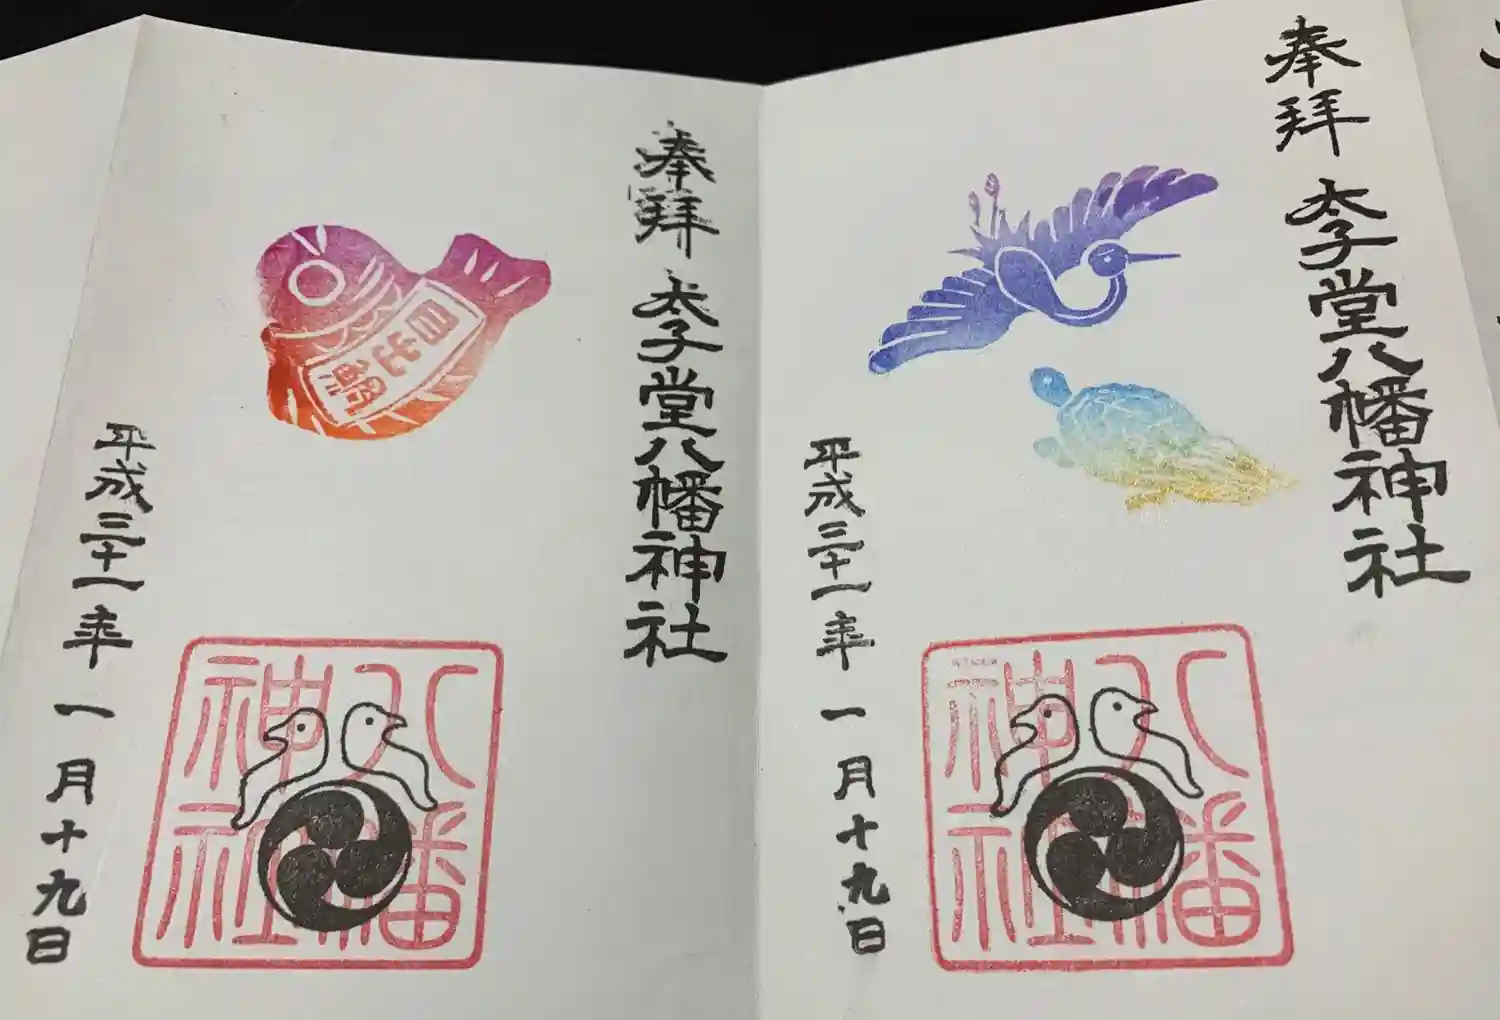 奉拝
太子堂八幡神社
八幡神社
平成三十一年
一月十九日
奉拝
太子堂八幡神社
八幡神社
平成三十一年
一月十九日